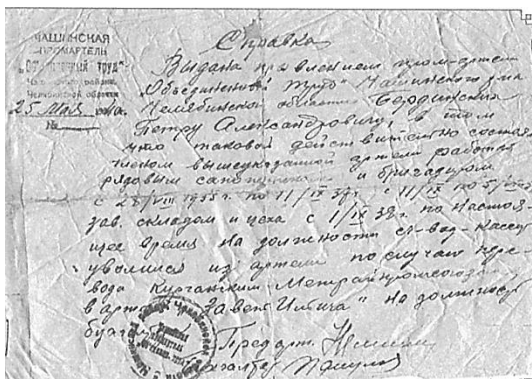 ЧАШИНСКАЯ
ПРОМАРТЕЛЬ
труд"
Чашинского района
Челябинской области
25 мая
№
Справка
Выдана правлением пром-артели
"Объединенный труд" Чашинского р-на
Челябинской области Бердинских
Петру Александровичу, в том
что таковой действительно состоял
членом вышеуказанной артели работал
рядовым и бригадиром
по 11/IX 37г. с 11/IX по
зав. складом и цеха с 1/IX 38г. по настоя-
щее время на должности
уволился из артели по случаю пере-
вода Курганским
в арт. Завет Ильича" на должность
Пред. арт.